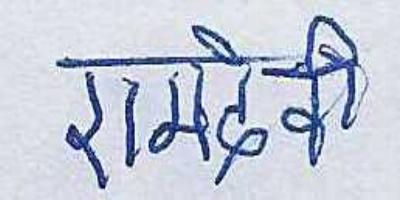 रामदेवी